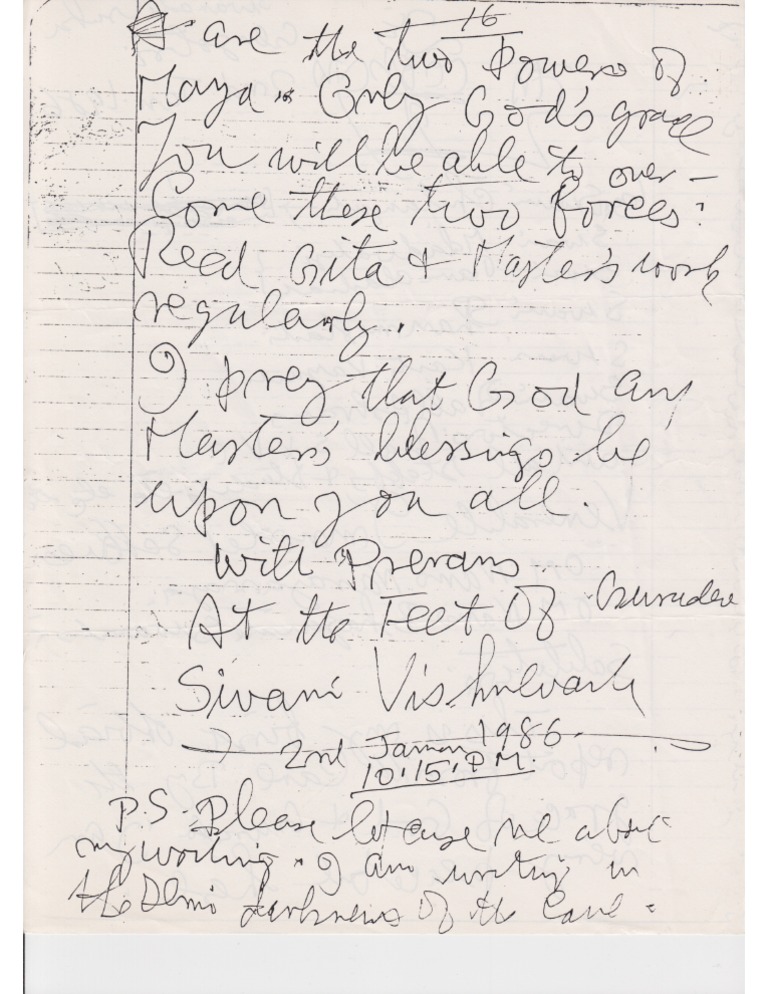 16
are the two Powers of
Maya. Only God's grace
You will be able to over-
Come these two forces.
Read Gita & Master's work
regularly.
I pray that God and
Master's blessings be
upon you all.
With Pranams
At the Feet Of Gurudeva
Swami
2nd 1986
10.15. P.M.
P.S. Please me about
my writing. I am writing in
the Demi darkness of the Cave.